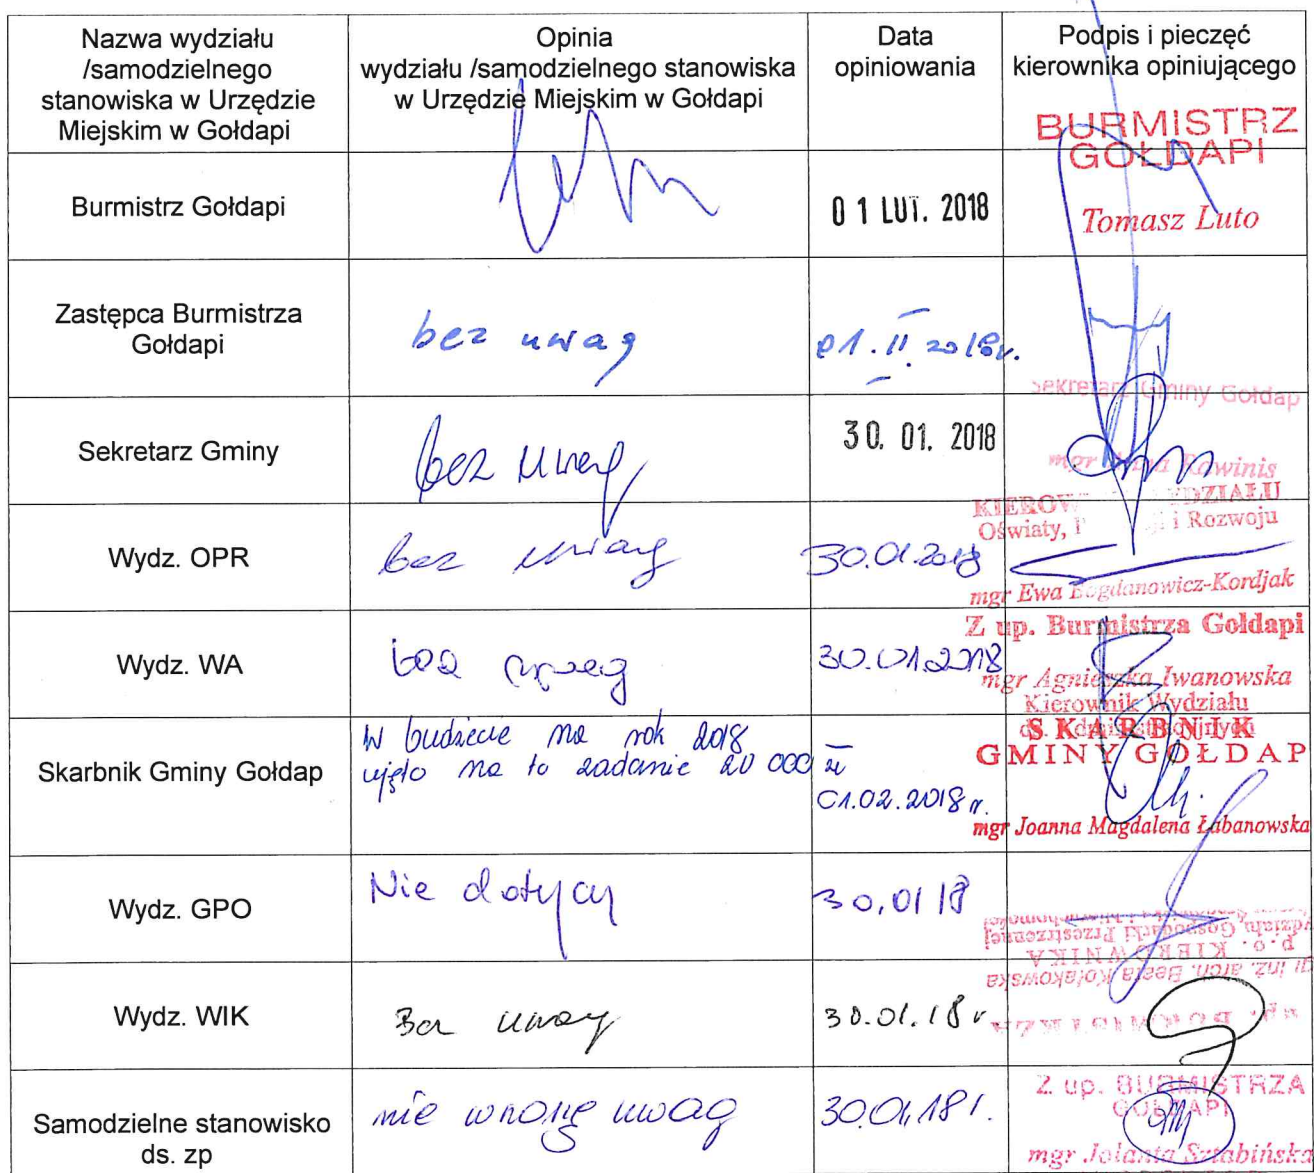 Nazwa wydziału
/samodzielnego
stanowiska w Urzędzie
Miejskim w Gołdapi
Opinia
wydziału /samodzielnego stanowiska
w Urzędzie Miejskim w Gołdapi
Data
opiniowania
Podpis i pieczęć
kierownika opiniującego
Burmistrz Gołdapi
0 1 LUT. 2018
BURMISTRZ
GOŁDAPI
Tomasz Luto
Zastępca Burmistrza
Gołdapi
bez uwag
01.II.2018r.
Sekretarz Gminy
bez uwag
30. 01. 2018
Sekretarz Gminy Gołdap
mgr Anna Rawinis
Wydz. OPR
bez uwag
30.01.2018
KIEROW WYDZIAŁU
Oświaty, i Rozwoju
mgr Ewa Bogdanowicz-Kordjak
Wydz. WA
bez uwag
30.01.2018
Z up. Burmistrza Gołdapi
mgr Agnieszka Iwanowska
Kierownik Wydziału
Skarbnik Gminy Gołdap
W budżecie na rok 2018
ujęto na to zadanie 20 000 zł
01.02.2018 r.
SKARBNIK
GMINY GOŁDAP
mgr Joanna Magdalena Łabanowska
Wydz. GPO
Nie dotyczy
30.01 18
Wydziału Gospodarki Przestrzennej
p.o. KIEROWNIKA
inż. arch. Beata Kołakowska
Wydz. WIK
Bez uwag
30.01.18 r
Samodzielne stanowisko
ds. zp
nie wnoszę uwag
30.01.18 r.
Z up. BURMISTRZA
GOŁDAPI
mgr Jolanta Sztabińska